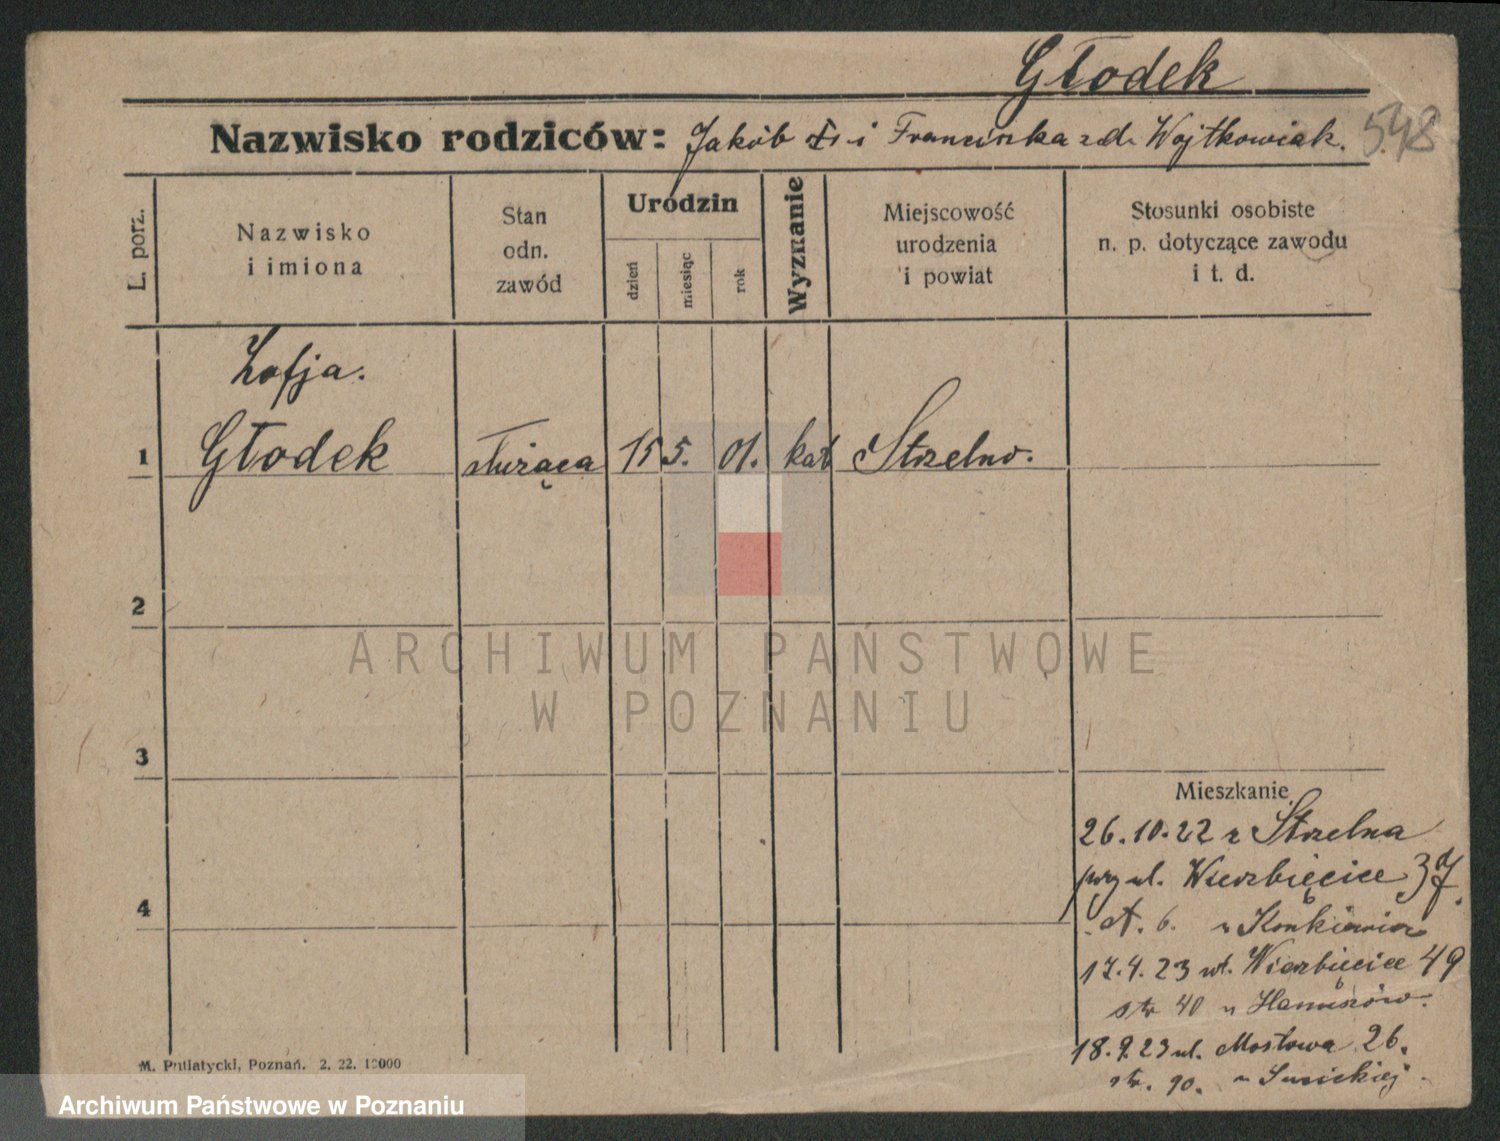 Głodek
Nazwisko rodziców: Jakób i Franciszka zd. Wojtkowiak.
548
L. porz.
Nazwisko
i imiona
Stan
odn.
zawód
Urodzin
dzień
miesiąc
rok
Wyznanie
Miejscowość
urodzenia
i powiat
Stosunki osobiste
n. p. dotyczące zawodu
i t. d.
Zofja.
1 Głodek służąca 15 5. 01. kat Strzelno.
2
ARCHIWUM PAŃSTWOWE
W POZNANIU
3
Mieszkanie
26.10.22 z Strzelna
przy ul. Wierzbięcice 37
6. u
4
17.4.23 ul. Wierzbięcice 49
str 40 u
18.9.23 ul. Mostowa 26.
str. 90. u
M. Putiatycki, Poznań. 2. 22. 10000
Archiwum Państwowe w Poznaniu